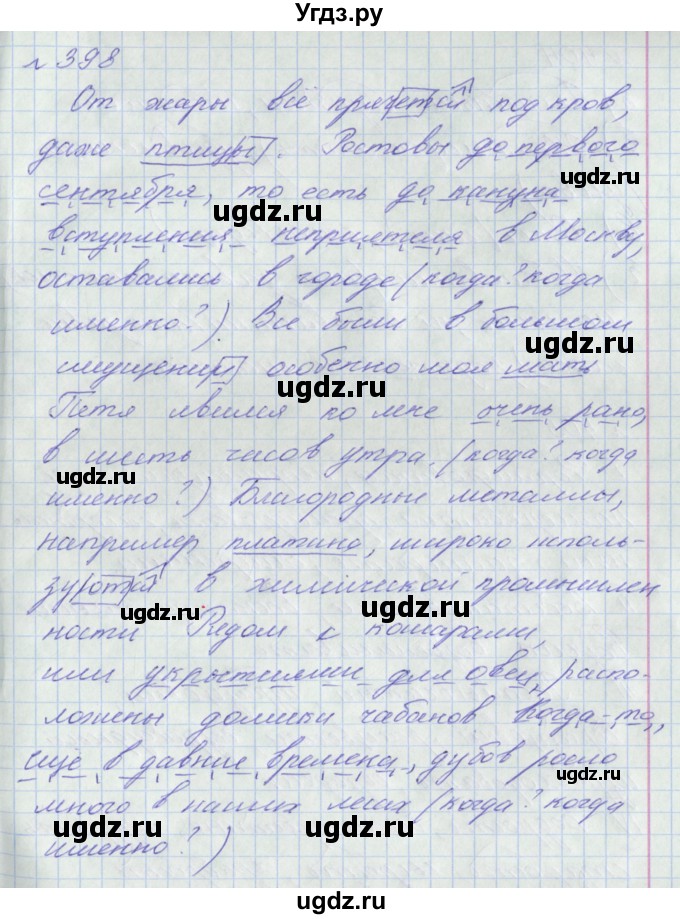 Угдз.ру
№398
От жары всё прячется под кров,
даже птицы. Ростовы до первого
сентября, то есть до кануна
вступления неприятеля в Москву,
оставались в городе (когда? когда
именно?) Все были в большом
смущении особенно моя мать
Петя явился ко мне очень рано,
в шесть часов утра. (когда? когда
именно?) Благородные металлы,
например платина, широко исполь-
зуются в химической промышлен
ности Рядом с кошарами,
или укрытиями для овец, распо-
ложены домики чабанов Когда-то,
ещё в давние времена, дубов росло
много в наших лесах (когда? когда
именно?)
ugdz.ru
ugdz.ru
ugdz.ru
ugdz.ru
ugdz.ru
ugdz.ru
ugdz.ru
ugdz.ru
ugdz.ru
ugdz.ru
ugdz.ru
ugdz.ru
ugdz.ru
ugdz.ru